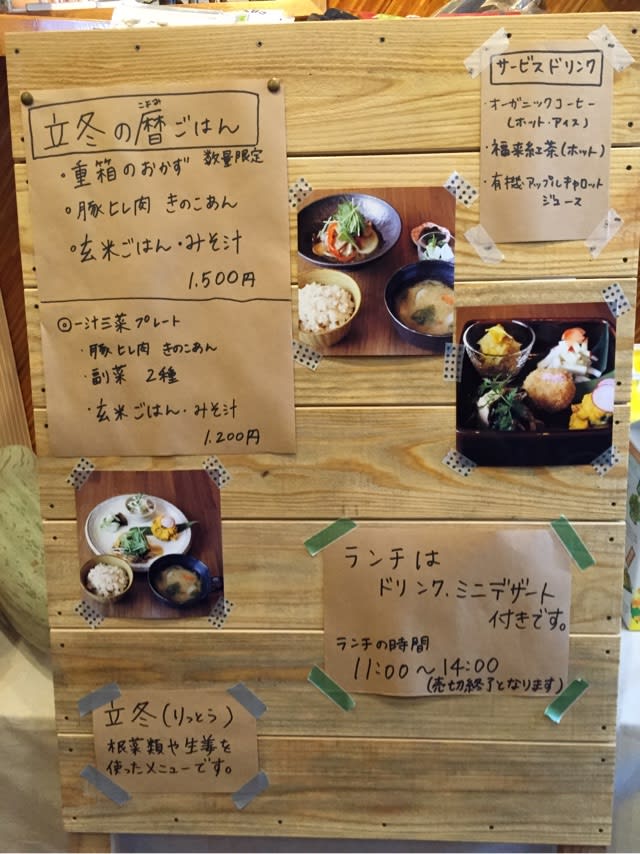 立冬の暦ごはん
こよみ
数量限定
・重箱のおかず
・豚ヒレ肉 きのこあん
・玄米ごはん・みそ汁
1.500円
◎一汁三菜プレート
・豚ヒレ肉 きのこあん
・副菜 2種
・玄米ごはん・みそ汁
1.200円
サービスドリンク
・オーガニックコーヒー
(ホット・アイス)
・福来紅茶(ホット)
・有機・アップルキャロット
ジュース
ランチは
ドリンク、ミニデザート
付きです。
ランチの時間
11:00〜14:00
(売切終了となります)
立冬(りっとう)
根菜類や生姜を
使ったメニューです。